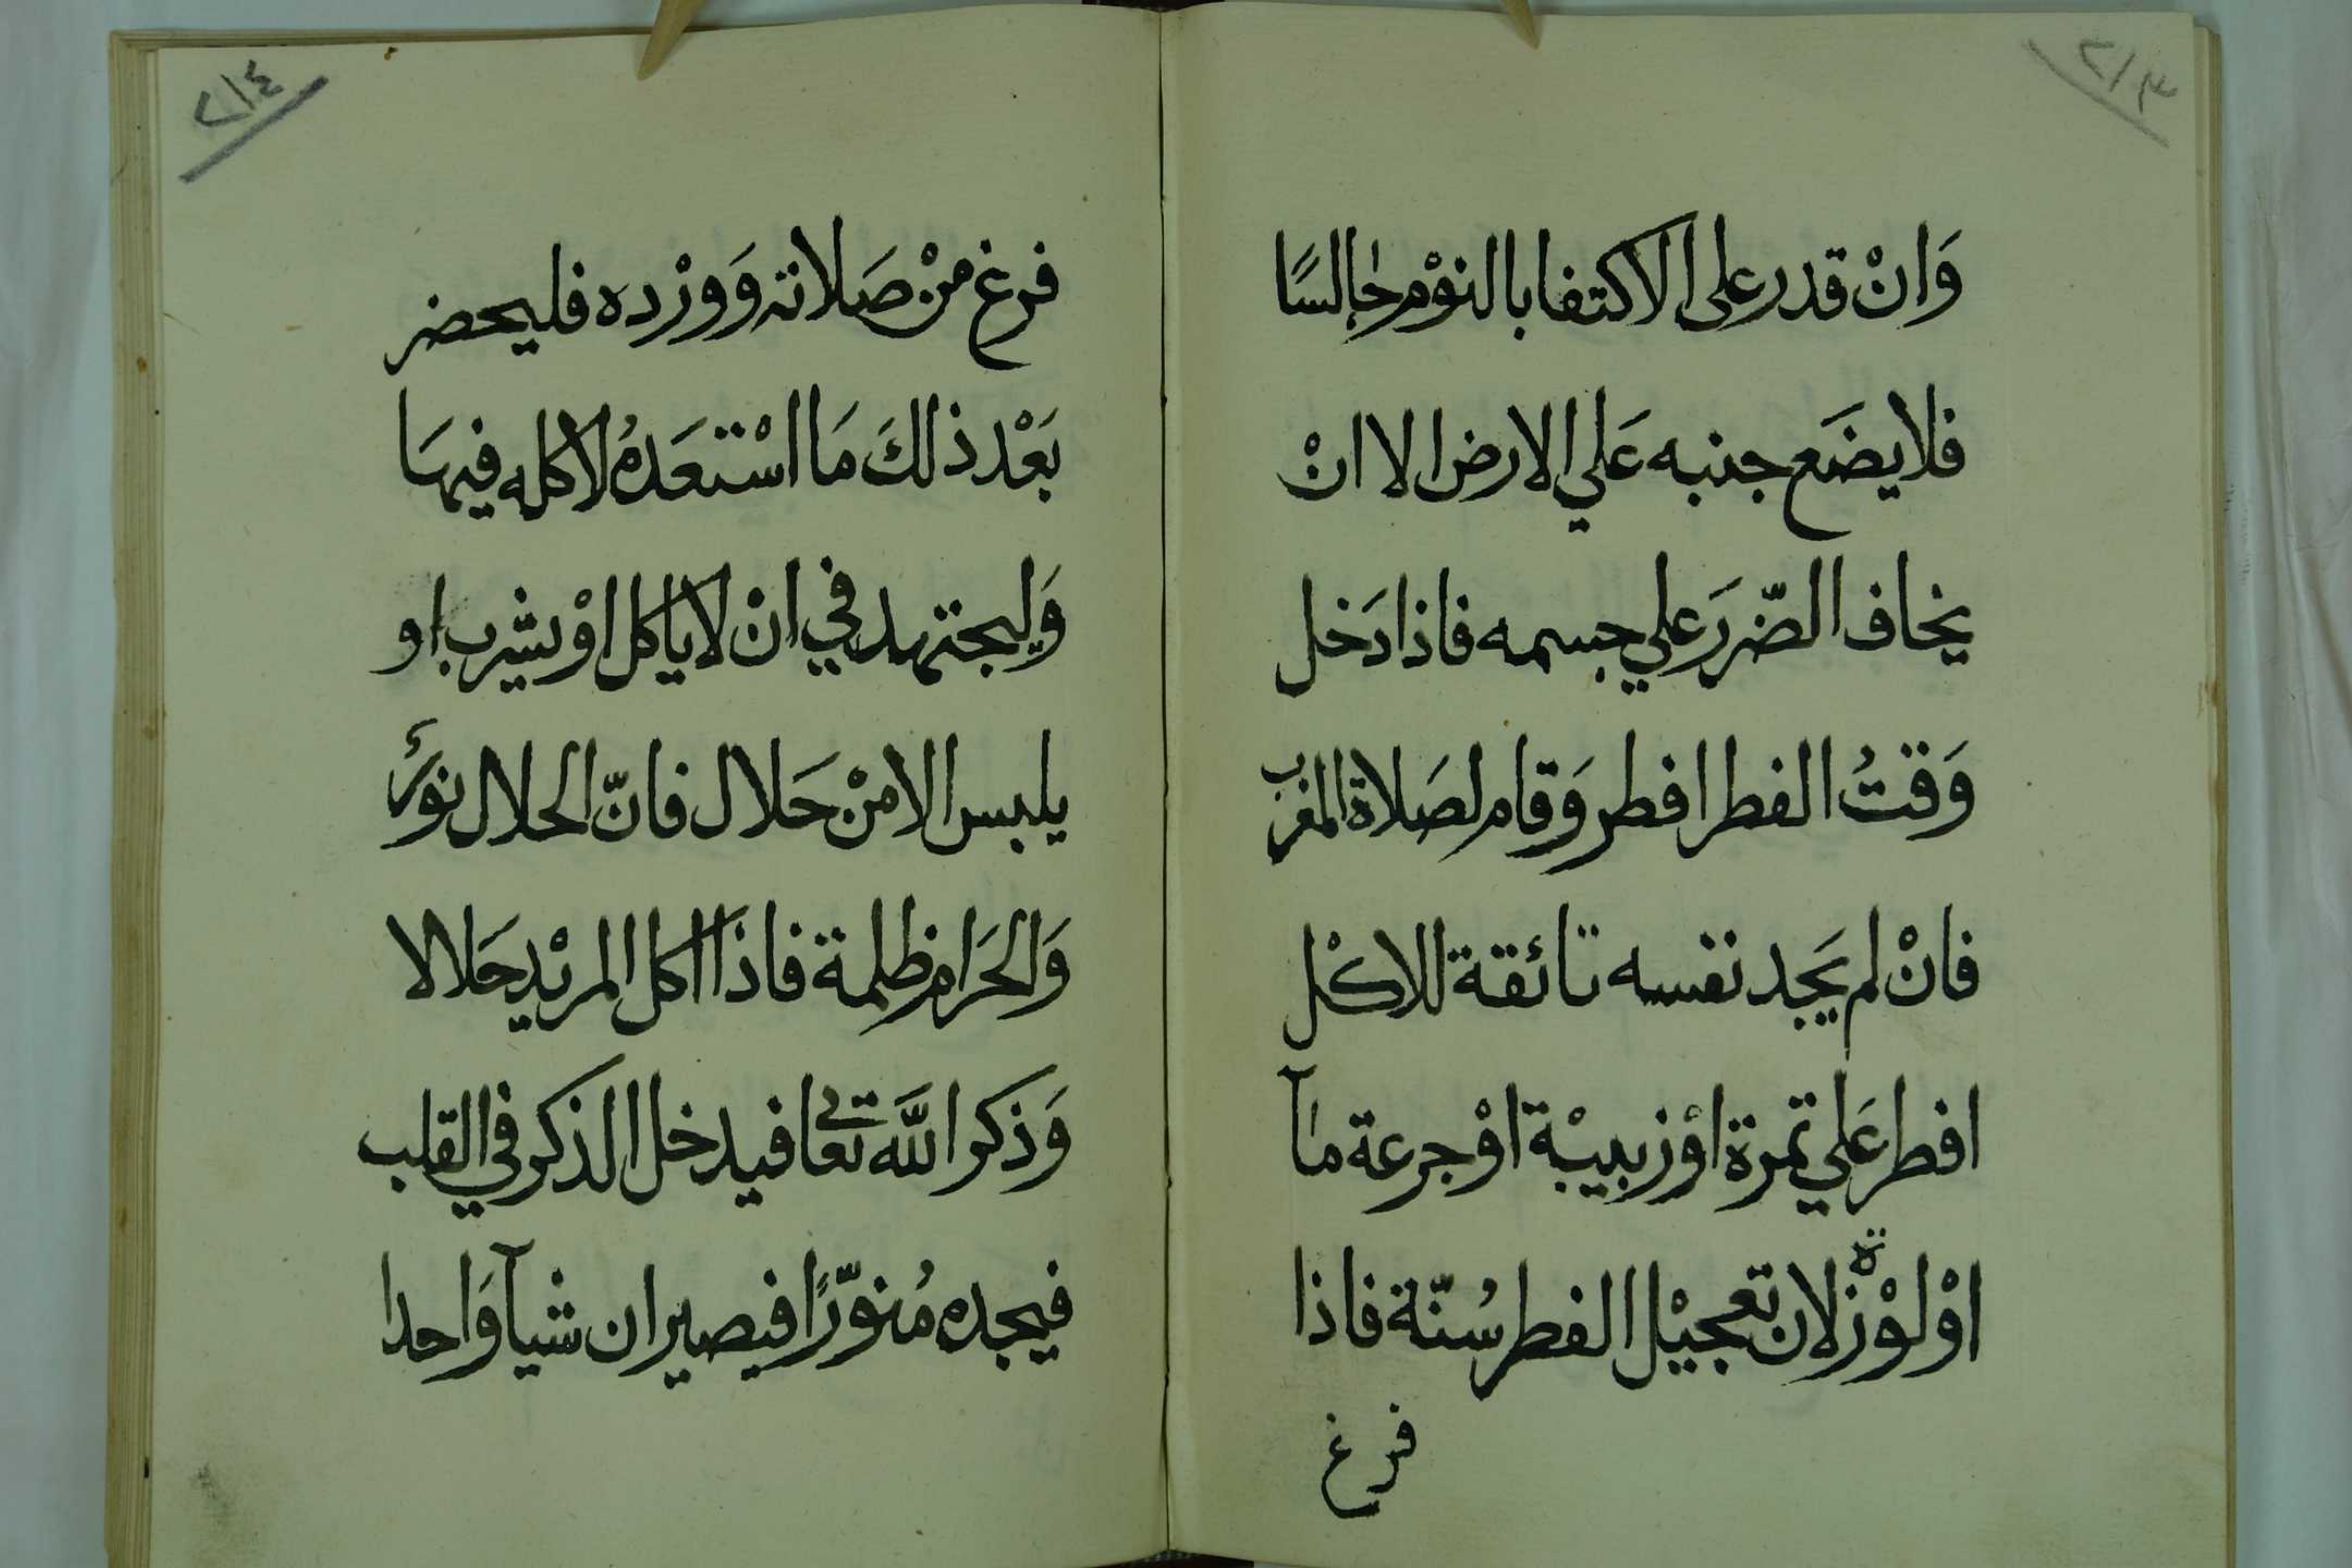 ٢١٣
وَانْ قدر على الاكتفا بالنوْم جالسًا
فلا يضَع جنبه عَلي الارض الا انْ
يخاف الضّررَ علي جسمه فاذا دَخل
وَقتُ الفطر افطر وَقام لصَلاة المغرب
فانْ لم يَجد نفسه تائقة للاكْل
افطر عَلي تمرة اوْ زبيبْة اوْ جرعة مآ
اوْ لوْزة لان تعجيْل الفطر سُنّة فاذا
فرغ
٢١٤
فرغ منْ صَلاته وَوِرْده فليحضر
بَعْد ذالكَ مَا اسْتعَدهُ لاكله فيهَا
وَليجتهد في انْ لا ياكل اوْ يشرب او
يلبس الا منْ حَلال فانّ الحلال نورٌ
وَالحَرام ظلمة فاذَا اكل المريْد حَلالا
وَذكر اللَّه تعالى فيدخل الذكر في القلب
فيجده مُنوّرًا فيصيران شيآ وَاحدا